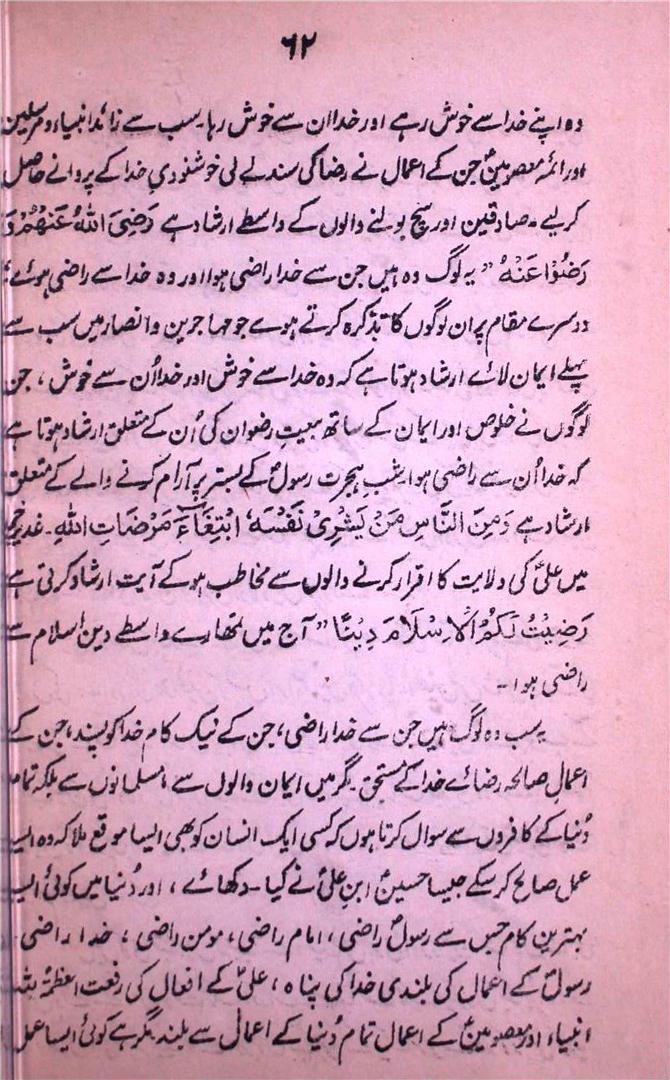 ۶۲
وہ اپنے خدا سے خوش رہے اور خدا ان سے خوش رہا۔ سب سے زائد انبیاء و مرسلین
اور ائمہ معصومینؑ جن کے اعمال نے رضا کی سند لے لی خوشنودیِ خدا کے پروانے حاصل
کرلیے۔ صادقین اور سچ بولنے والوں کے واسطے ارشاد ہے رَضِیَ اللهُ عَنْهُمْ وَ
رَضُوْا عَنْهُ ”یہ لوگ وہ ہیں جن سے خدا راضی ہوا اور وہ خدا سے راضی ہوئے“
دوسرے مقام پر ان لوگوں کا تذکرہ کرتے ہوے جو مہاجرین و انصار میں سب سے
پہلے ایمان لائے ارشاد ہوتا ہے کہ وہ خدا سے خوش اور خدا اُن سے خوش، جن
لوگوں نے خلوص اور ایمان کے ساتھ بیعتِ رضوان کی اُن کے متعلق ارشاد ہوتا ہے
کہ خدا اُن سے راضی ہوا۔ شب ہجرت رسولؐ کے بستر پر آرام کرنے والے کے متعلق
ارشاد ہے وَمِنَ النَّاسِ مَنْ یَشْرِیْ نَفْسَهُ ابْتِغَآءَ مَرْضَاتِ اللهِ۔ غدیر خم
میں علیؑ کی ولایت کا اقرار کرنے والوں سے مخاطب ہو کے آیت ارشاد کرتی ہے
رَضِیْتُ لَکُمُ الْاِسْلَامَ دِیْنًا ”آج میں تمھارے واسطے دین اسلام سے
راضی ہوا۔
یہ سب وہ لوگ ہیں جن سے خدا راضی، جن کے نیک کام خدا کو پسند، جن کے
اعمال صالحہ رضائے خدا کے مستحق۔ مگر میں ایمان والوں سے، مسلمانوں سے بلکہ تمام
دُنیا کے کافروں سے سوال کرتا ہوں کہ کسی ایک انسان کو بھی ایسا موقع ملا کہ وہ
عمل صالح کر سکے جیسا حسینؑ ابن علیؑ نے کیا۔ دکھائے، اور دُنیا میں کوئی
بہترین کام جس سے رسولؐ راضی، امام راضی، مومن راضی، خدا راضی۔
رسولؐ کے اعمال کی بلندی خدا کی پناہ، علیؑ کے افعال کی رفعت العظمۃ
انبیاء اور معصومینؑ کے اعمال تمام دُنیا کے اعمال سے بلند مگر ہے کوئی ایسا عمل